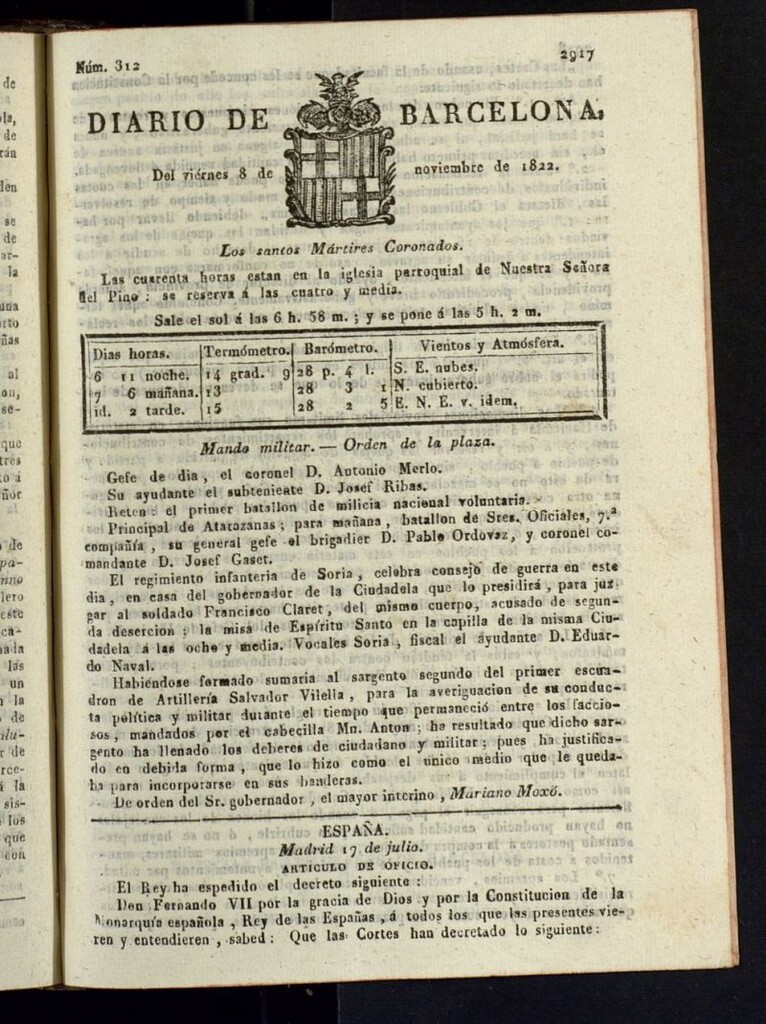 Núm. 312
2917
DIARIO DE BARCELONA,
Del viérnes 8 de noviembre de 1822.
Los santos Mártires Coronados.
Las cuarenta horas estan en la iglesia parroquial de Nuestra Señora
del Pino: se reserva á las cuatro y media.
Sale el sol á las 6 h. 58 m.; y se pone á las 5 h. 2 m.
Dias horas. Termómetro. Barómetro. Vientos y Atmósfera.
6 11 noche. 14 grad. 9 28 p. 4 l. S. E. nubes.
7 6 mañana. 13 28 3 1 N. cubierto.
id. 2 tarde. 15 28 2 5 E. N. E. v. idem.
Mando militar. — Orden de la plaza.
Gefe de dia, el coronel D. Antonio Merlo.
Su ayudante el subteniente D. Josef Ribas.
Reten: el primer batallon de milicia nacional voluntaria.
Principal de Atarazanas; para mañana, batallon de Sres. Oficiales, 7.ª
compañía, su general gefe el brigadier D. Pablo Ordovaz, y coronel co-
mandante D. Josef Gaset.
El regimiento infanteria de Soria, celebra consejo de guerra en este
dia, en casa del gobernador de la Ciudadela que lo presidirá, para juz-
gar al soldado Francisco Claret, del mismo cuerpo, acusado de segun-
da desercion; la misa de Espíritu Santo en la capilla de la misma Ciu-
dadela á las ocho y media. Vocales Soria, fiscal el ayudante D. Eduar-
do Naval.
Habiéndose formado sumaria al sargento segundo del primer escua-
dron de Artillería Salvador Vilella, para la averiguacion de su conduc-
ta política y militar durante el tiempo que permaneció entre los faccio-
sos, mandados por el cabecilla Mn. Anton; ha resultado que dicho sar-
gento ha llenado los deberes de ciudadano y militar; pues ha justifica-
do en debida forma, que lo hizo como el único medio que le queda-
ba para incorporarse en sus banderas.
De orden del Sr. gobernador, el mayor interino, Mariano Moxó.
ESPAÑA.
Madrid 17 de julio.
ARTICULO DE OFICIO.
El Rey ha espedido el decreto siguiente:
Don Fernando VII por la gracia de Dios y por la Constitucion de la
Monarquía española, Rey de las Españas, á todos los que las presentes vie-
ren y entendieren, sabed: Que las Cortes han decretado lo siguiente: